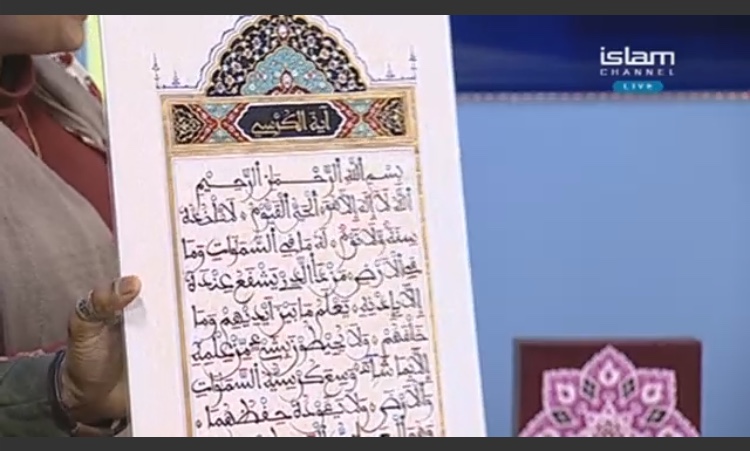 islam
CHANNEL
LIVE
آية الكرسي
بسم الله الرحمن الرحيم
الله لا إله إلا هو الحي القيوم لا تأخذه
سنة ولا نوم له ما في السموات وما
في الأرض من ذا الذي يشفع عنده
إلا بإذنه يعلم ما بين أيديهم وما
خلفهم ولا يحيطون بشيء من علمه
إلا بما شاء وسع كرسيه السموات
والأرض ولا يؤده حفظهما